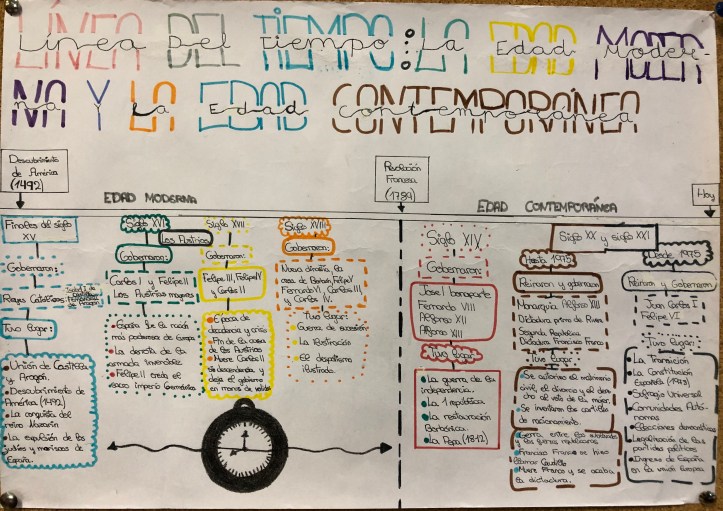 Línea Del Tiempo: La Edad Moder-
na Y La Edad Contemporánea
Descubrimiento
de América
(1492)
Revolución
Francesa
(1789)
Hoy
EDAD MODERNA
EDAD CONTEMPORÁNEA
Finales del siglo
XV
Gobernaron:
Reyes Católicos:
Tuvo lugar:
Unión de Castilla
y Aragón.
Descubrimiento de
América (1492)
La conquista del
reino Nazarín
La expulsión de los
judíos y moriscos de
España.
Siglo XVI
Los Austrias
Gobernaron:
Carlos I y Felipe II
Los Austrias mayores
España fue la nación
más poderosa de Europa
La derrota de la
armada invencible.
Felipe II creó el
Siglo XVII
Gobernaron:
Felipe III, Felipe IV
y Carlos II
Época de
decadencia y crisis
Fin de la casa
de los Austrias
Muere Carlos II
sin descendencia y
deja el gobierno
en manos de
Siglo XVIII
Gobernaron:
Nueva dinastía, la
casa de Borbón, Felipe V
Fernando VI, Carlos III
y Carlos IV.
Tuvo lugar:
Guerra de sucesión
La ilustración
El despotismo
ilustrado.
Siglo XIV
Gobernaron:
José I bonaparte
Fernando VIII
Alfonso XII
Alfonso XIII
Tuvo lugar
La guerra de la
independencia.
La I república
La restauración
Borbónica.
La Pepa (1812)
Siglo XX y siglo XXI
Hasta 1975
Reinaron y gobernaron
Monarquía Alfonso XIII
Dictadura primo de Rivera
Segunda República
Dictadura Francisco Franco
Tuvo lugar
Se autorizó el matrimonio
civil, el divorcio y el dere-
cho al voto de la mujer.
Se inventaron las cartillas
de racionamiento.
Guerra entre los sublevados
y las fuerzas republicanas
Francisco Franco se hizo
llamar Caudillo
Muere Franco y se acaba
la dictadura.
Desde 1975
Reinan y Gobiernan
Juan Carlos I
Felipe VI
Tuvo lugar:
La Transición
La Constitución
Española (1978)
Sufragio Universal
Comunidades Autó-
nomas
Elecciones democráticas
Legalización de los
partidos políticos
Ingreso de España
en la unión Europea.